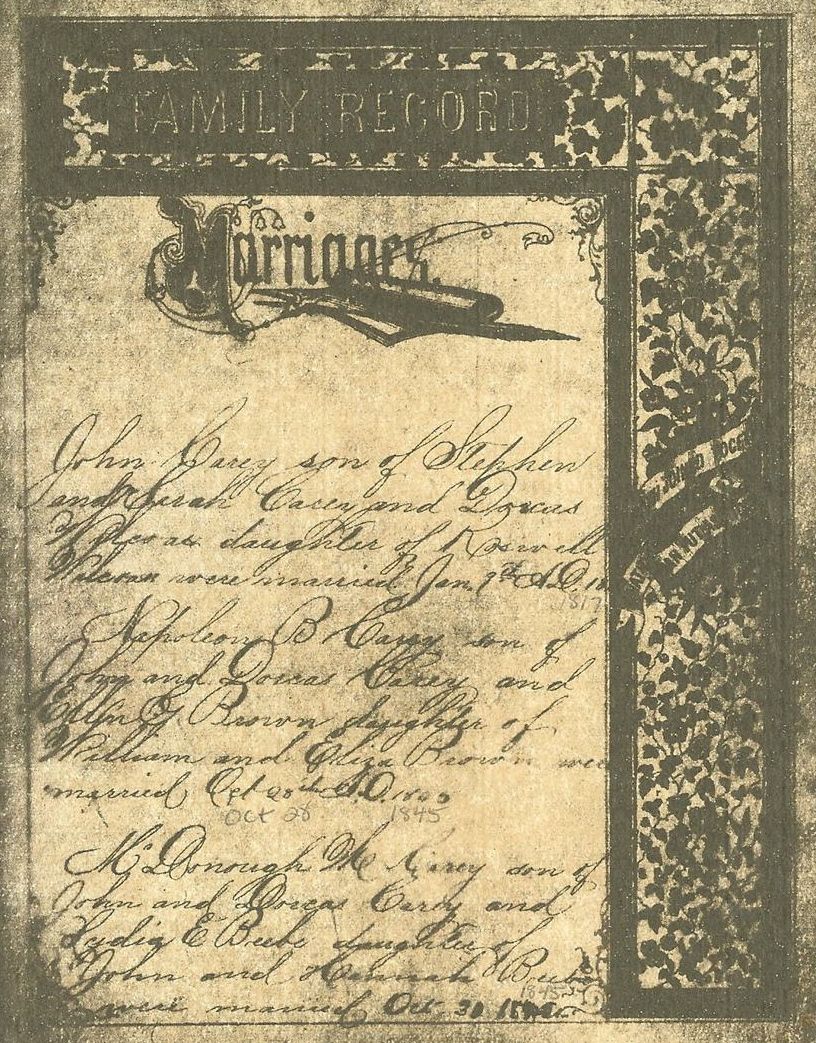 FAMILY RECORD
Marriages.
John Carey son of Stephen
and Sarah Carey and Dorcas
daughter of Roswell
were married Jan. 9th A.D. 18
1817
Napoleon B Carey son of
John and Dorcas Carey and
Ellen Brown daughter of
William and Eliza Brown were
married Oct 28th A.D. 18
Oct 28 1845
McDonough M Carey son of
John and Dorcas Carey and
Lydia E Beebe daughter of
John and Hannah Beebe
were married Oct. 30